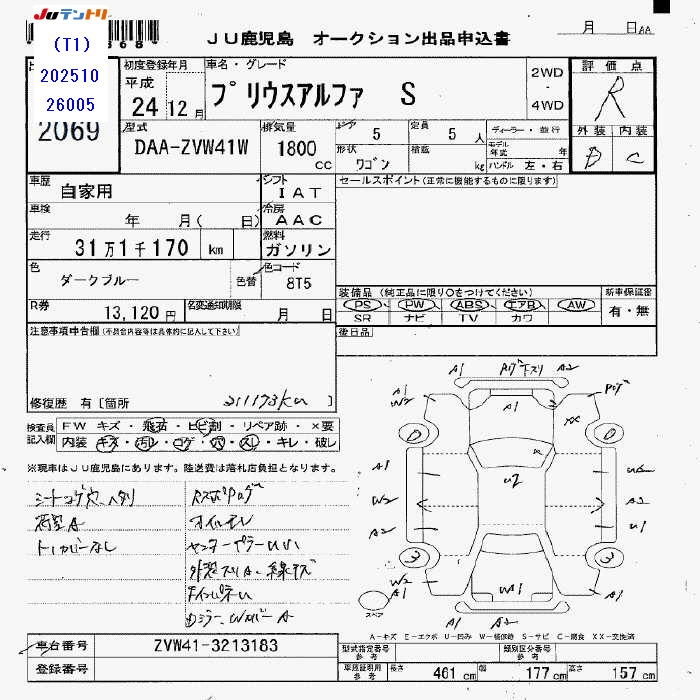 JUテントリー
(T1)
202510
26005
2069
JU鹿児島 オークション出品申込書
月 日 AA
初度登録年月
平成
24 12 月
車名・グレード
プリウスアルファ S
2WD
・
4WD
評価点
R
外装 内装
D C
型式
DAA-ZVW41W
排気量
1800 cc
ドア 5
定員 5 人
形状 ワゴン
積載 kg
ディーラー・並行
モデル年式 年
ハンドル 左・右
車歴
自家用
シフト
IAT
セールスポイント(正常に機能するものに限ります)
車検
年 月( 日)
冷房
AAC
走行
31万1千170 km
燃料
ガソリン
色
ダークブルー
色替
色コード
8T5
装備品 (純正品に限り○をつけてください)
PS PW ABS エアB AW
SR ナビ TV カワ
新車保証書
有・無
R券
13,120 円
名変通知期限
月 日
後日品
注意事項申告欄(不具合内容等は具体的に記入して下さい)
修復歴 有 [箇所 311173km ]
検査員記入欄
FW キズ・飛石・ヒビ割・リペア跡・×要
内装 キズ・汚レ・コゲ・穴・スレ・キレ・破レ
※現車はJU鹿児島にあります。陸送費は落札店負担となります。
シートコゲ穴、ヘタリ
荷室A
トノカバーなし
オイルモレ
A1 A2
A1
W2
A1
××
U2
A1
W2
A2
U1
W2
A1
WA1
A1
A2 A1
スペア
A-キズ E-エクボ U-凹み W-補修跡 S-サビ C-腐食 XX-交換済
車台番号 ZVW41-3213183
登録番号
型式指定番号 参考
類別区分番号 参考
車庫証明用 参考
長さ 461 cm 幅 177 cm 高さ 157 cm